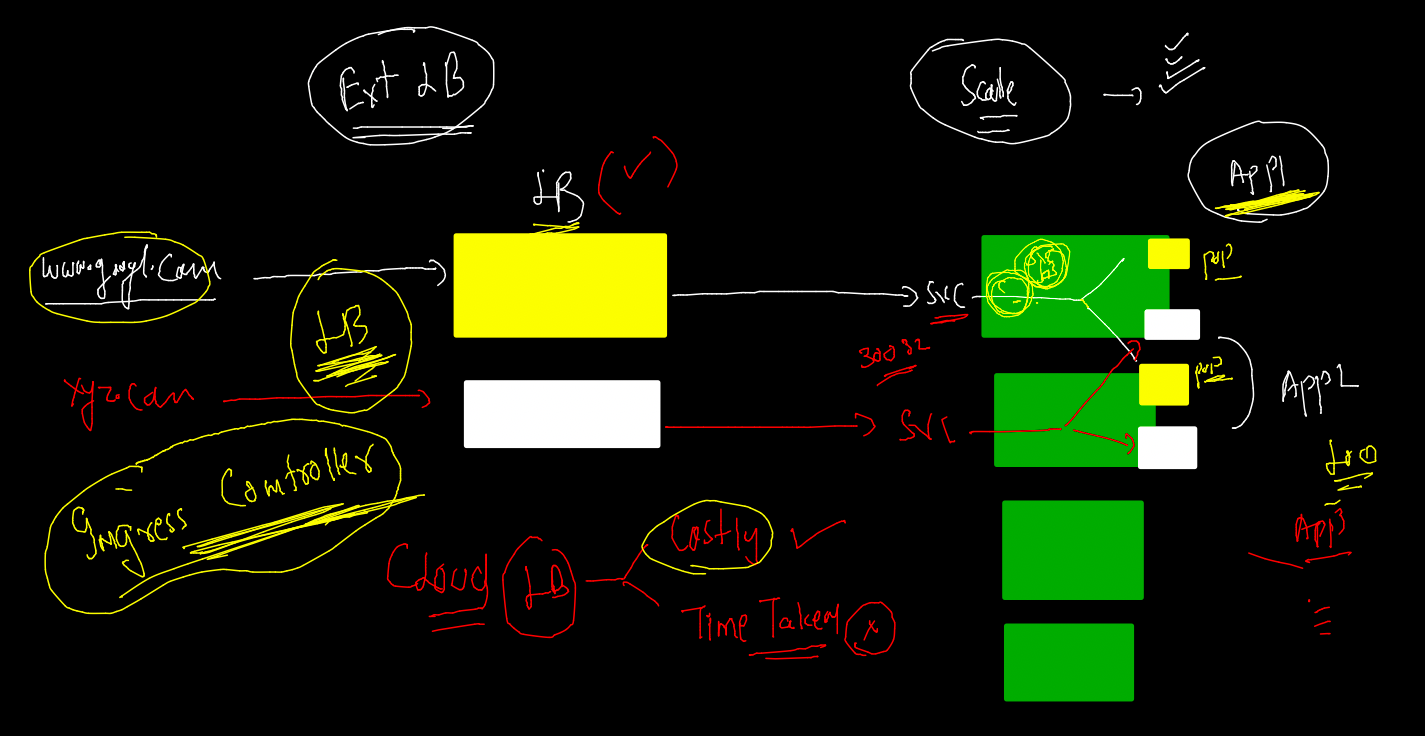 Ext LB
Scale
App1
LB
www.googl.com
SVC
POD
LB
30032
POD
App2
xyz.com
SVC
100
Ingress Controller
App3
Costly
Cloud LB
Time Taken
x